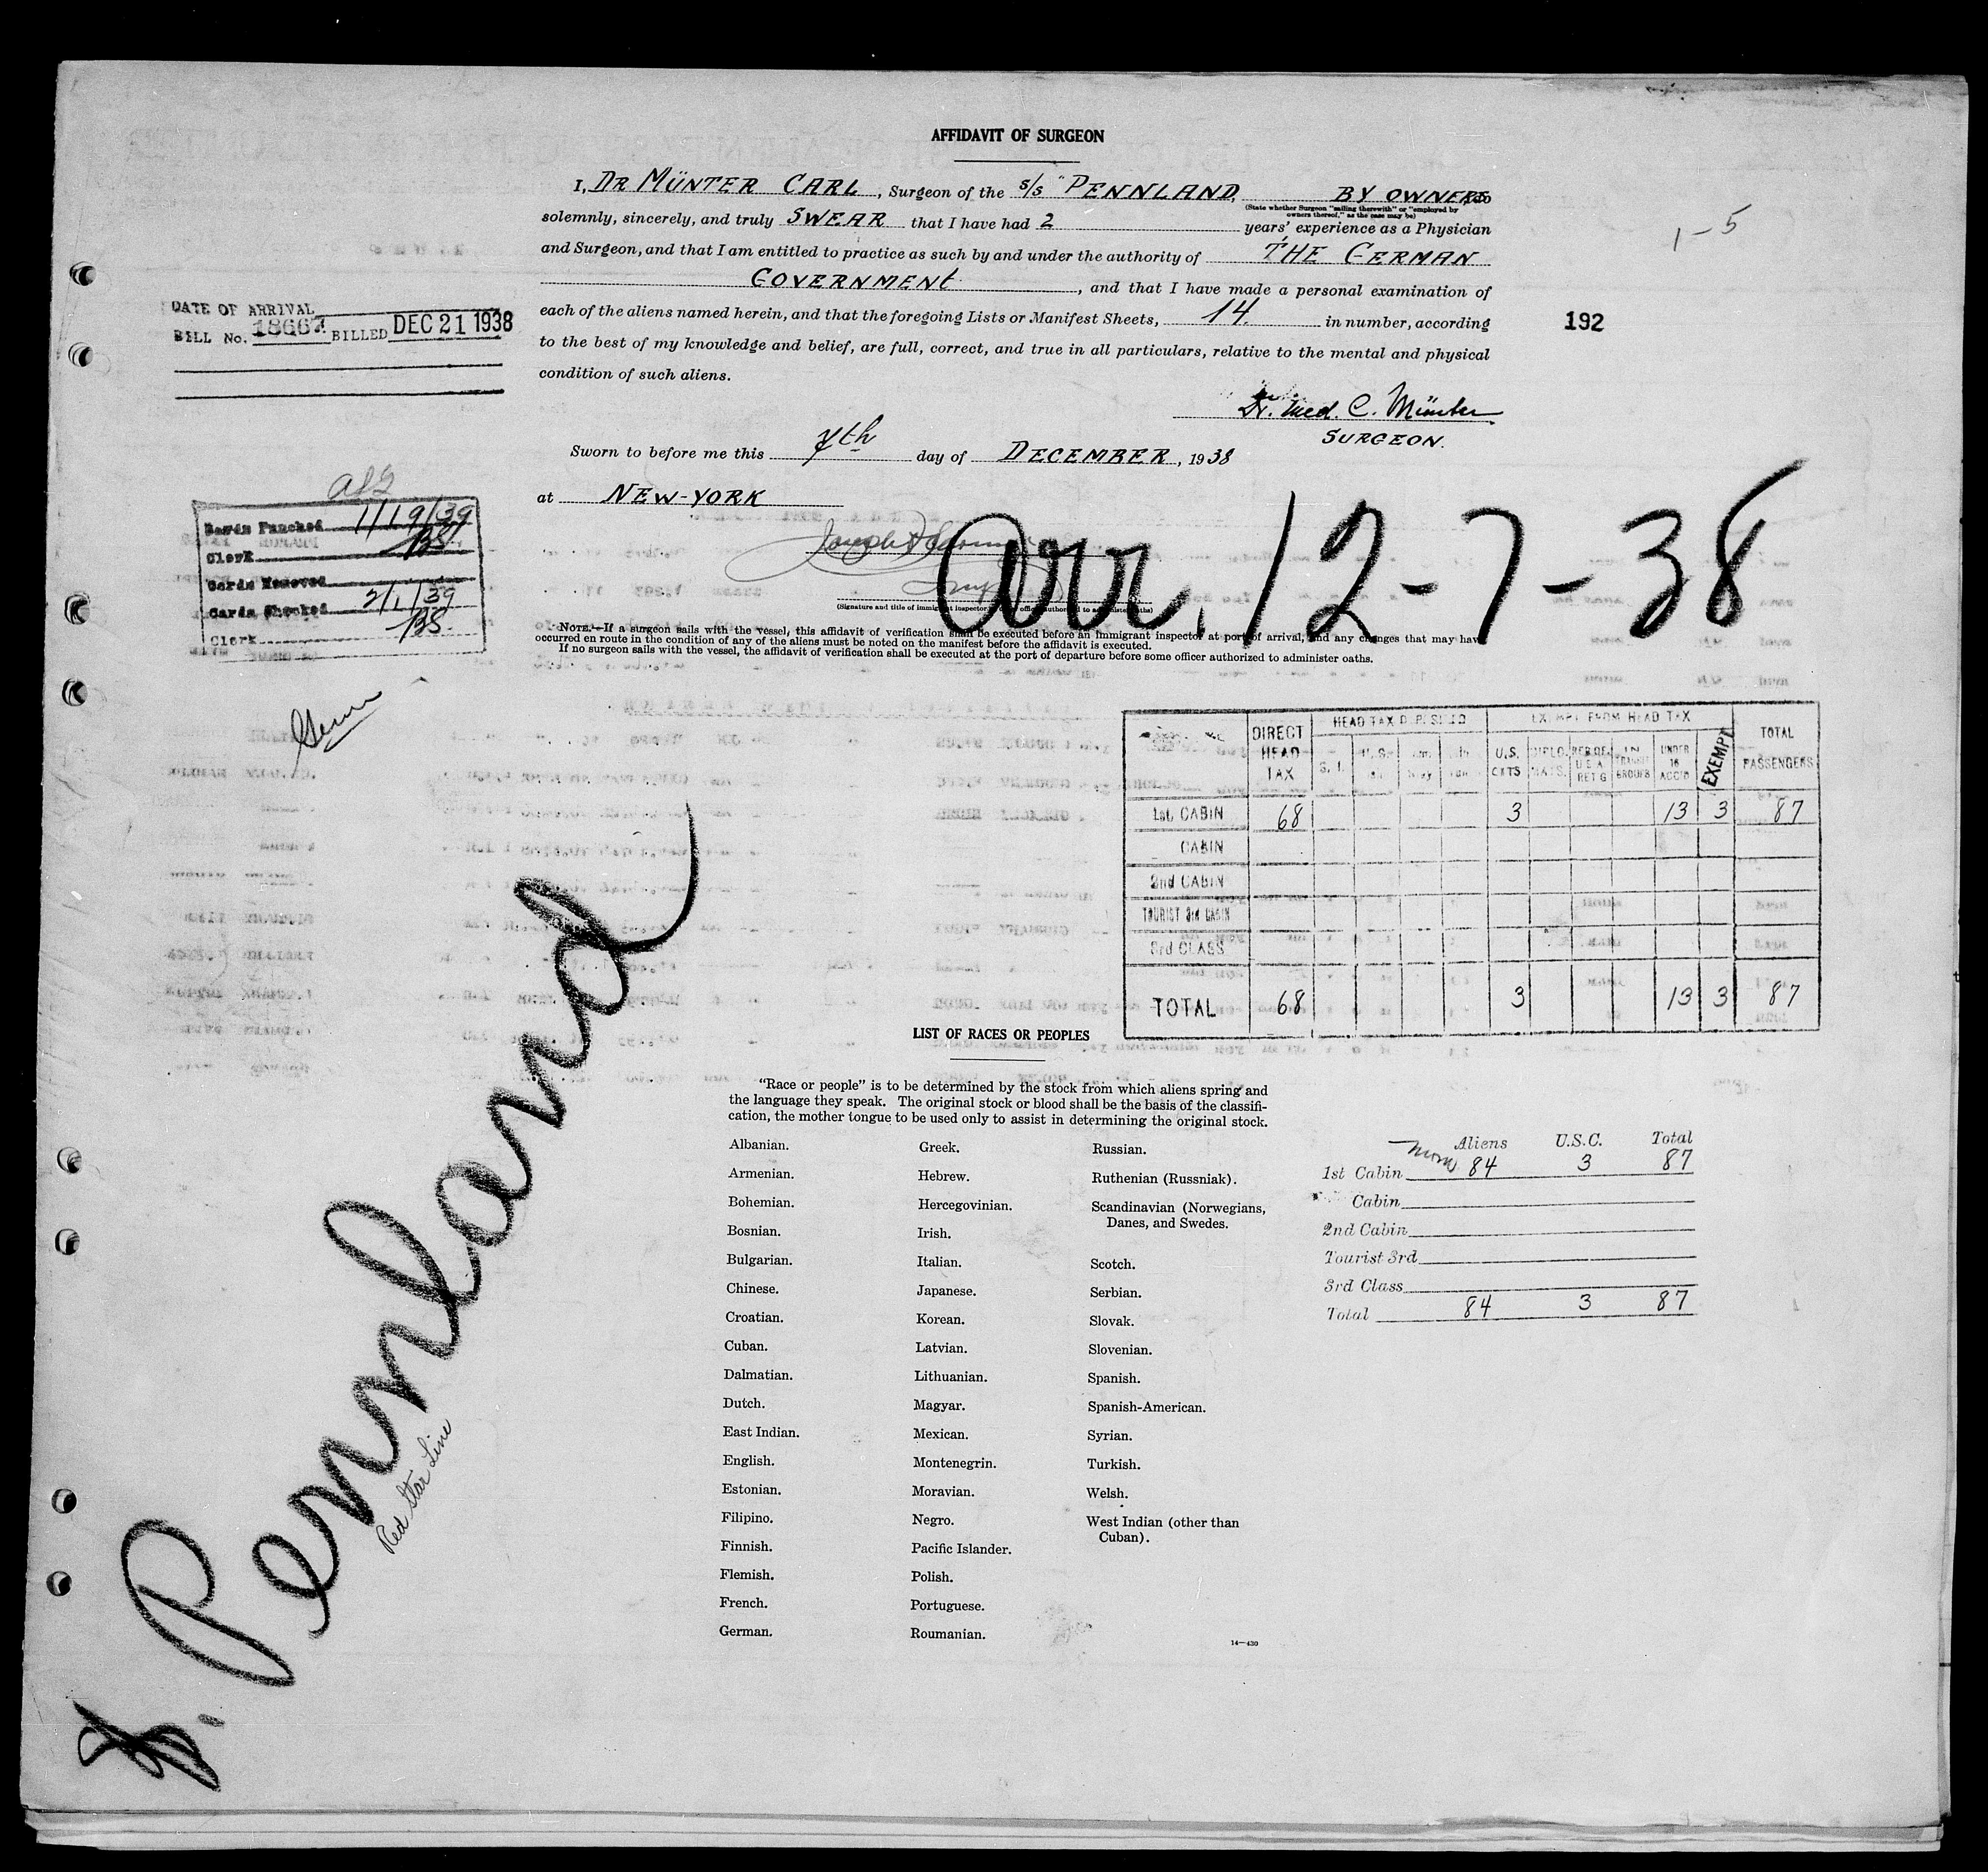 AFFIDAVIT OF SURGEON
I, DR MÜNTER CARL, Surgeon of the s/s "PENNLAND, BY OWNERS do
(State whether Surgeon "sailing therewith" or "employed by owners thereof," as the case may be)
solemnly, sincerely, and truly SWEAR that I have had 2 years' experience as a Physician
and Surgeon, and that I am entitled to practice as such by and under the authority of THE GERMAN
GOVERNMENT, and that I have made a personal examination of
each of the aliens named herein, and that the foregoing Lists or Manifest Sheets, 14 in number, according
to the best of my knowledge and belief, are full, correct, and true in all particulars, relative to the mental and physical
condition of such aliens.
Dr. med. C. Münter
SURGEON.
Sworn to before me this 7th day of DECEMBER, 1938
at NEW-YORK
(Signature and title of immigrant inspector officer authorized to administer oaths)
NOTE.—If a surgeon sails with the vessel, this affidavit of verification shall be executed before an immigrant inspector at port of arrival, and any changes that may have
occurred en route in the condition of any of the aliens must be noted on the manifest before the affidavit is executed.
If no surgeon sails with the vessel, the affidavit of verification shall be executed at the port of departure before some officer authorized to administer oaths.
1-5
192
DATE OF ARRIVAL
BILL No. 18667 BILLED DEC 21 1938
Cards Punched 1/19/39
Clerk BS
Cards Removed
Cards Checked 2/1/39
Clerk BS
Arr. 12-7-38
S. Pennland
Red Star Line
DIRECT HEAD TAX
HEAD TAX DEPOSITED
EXEMPT FROM HEAD TAX
TOTAL PASSENGERS
S. I.
U.S. CXTS
DIPLOMATS.
RES OF U S A RET G
IN TRANSIT GROUPS
UNDER 16 ACC'D
EXEMPT
1st CABIN 68 3 13 3 87
CABIN
2nd CABIN
TOURIST 3rd CABIN
3rd CLASS
TOTAL 68 3 13 3 87
LIST OF RACES OR PEOPLES
"Race or people" is to be determined by the stock from which aliens spring and
the language they speak. The original stock or blood shall be the basis of the classifi-
cation, the mother tongue to be used only to assist in determining the original stock.
Albanian.
Armenian.
Bohemian.
Bosnian.
Bulgarian.
Chinese.
Croatian.
Cuban.
Dalmatian.
Dutch.
East Indian.
English.
Estonian.
Filipino.
Finnish.
Flemish.
French.
German.
Greek.
Hebrew.
Hercegovinian.
Irish.
Italian.
Japanese.
Korean.
Latvian.
Lithuanian.
Magyar.
Mexican.
Montenegrin.
Moravian.
Negro.
Pacific Islander.
Polish.
Portuguese.
Roumanian.
Russian.
Ruthenian (Russniak).
Scandinavian (Norwegians,
Danes, and Swedes.
Scotch.
Serbian.
Slovak.
Slovenian.
Spanish.
Spanish-American.
Syrian.
Turkish.
Welsh.
West Indian (other than
Cuban).
14—430
Aliens U.S.C. Total
1st Cabin 84 3 87
Cabin
2nd Cabin
Tourist 3rd
3rd Class
Total 84 3 87